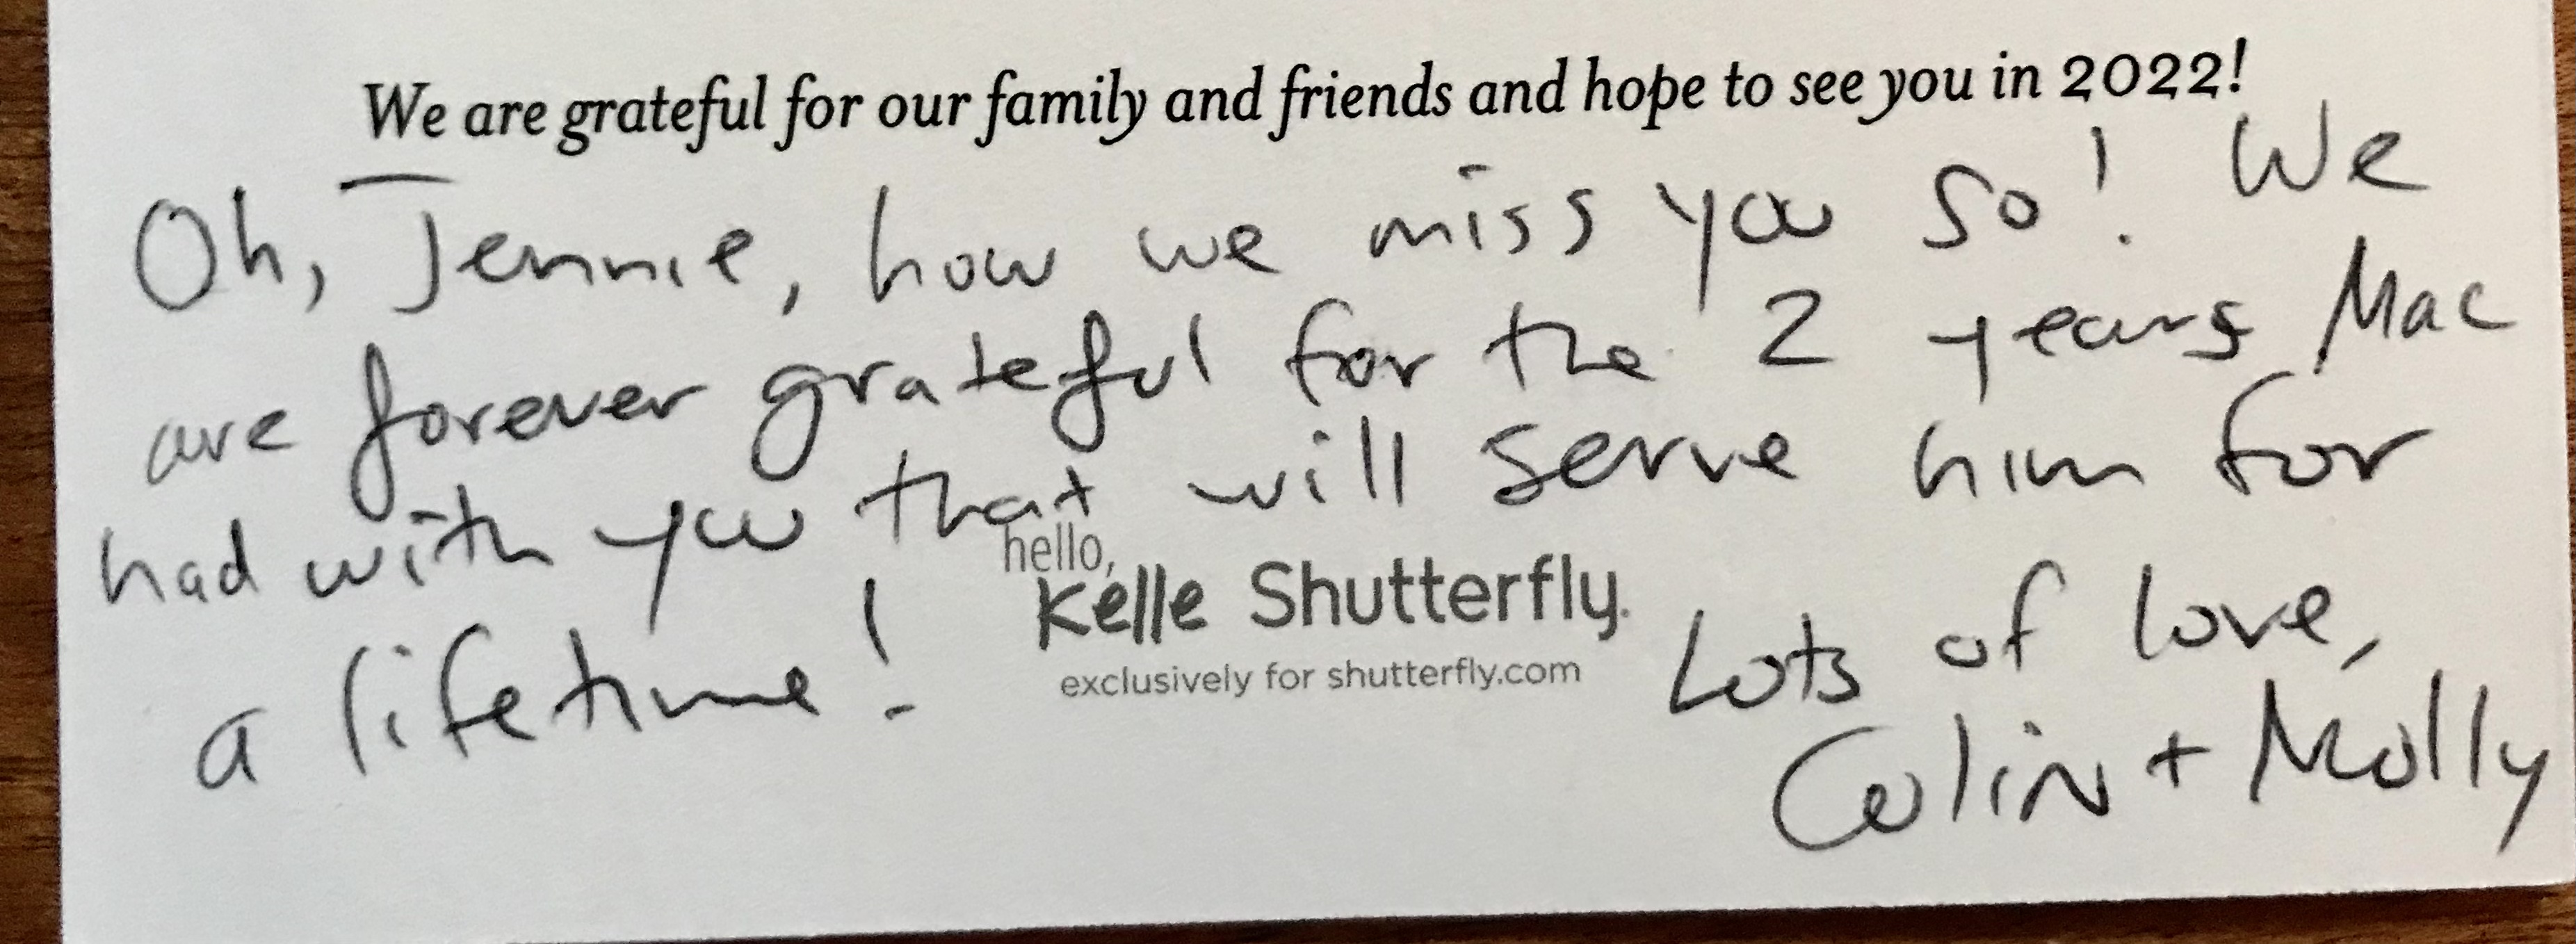 We are grateful for our family and friends and hope to see you in 2022!
Oh, Jennie, how we miss you so! We
are forever grateful for the 2 years Mac
had with you that will serve him for
a lifetime!
hello,
Kelle Shutterfly.
exclusively for shutterfly.com
Lots of love,
Colin + Molly